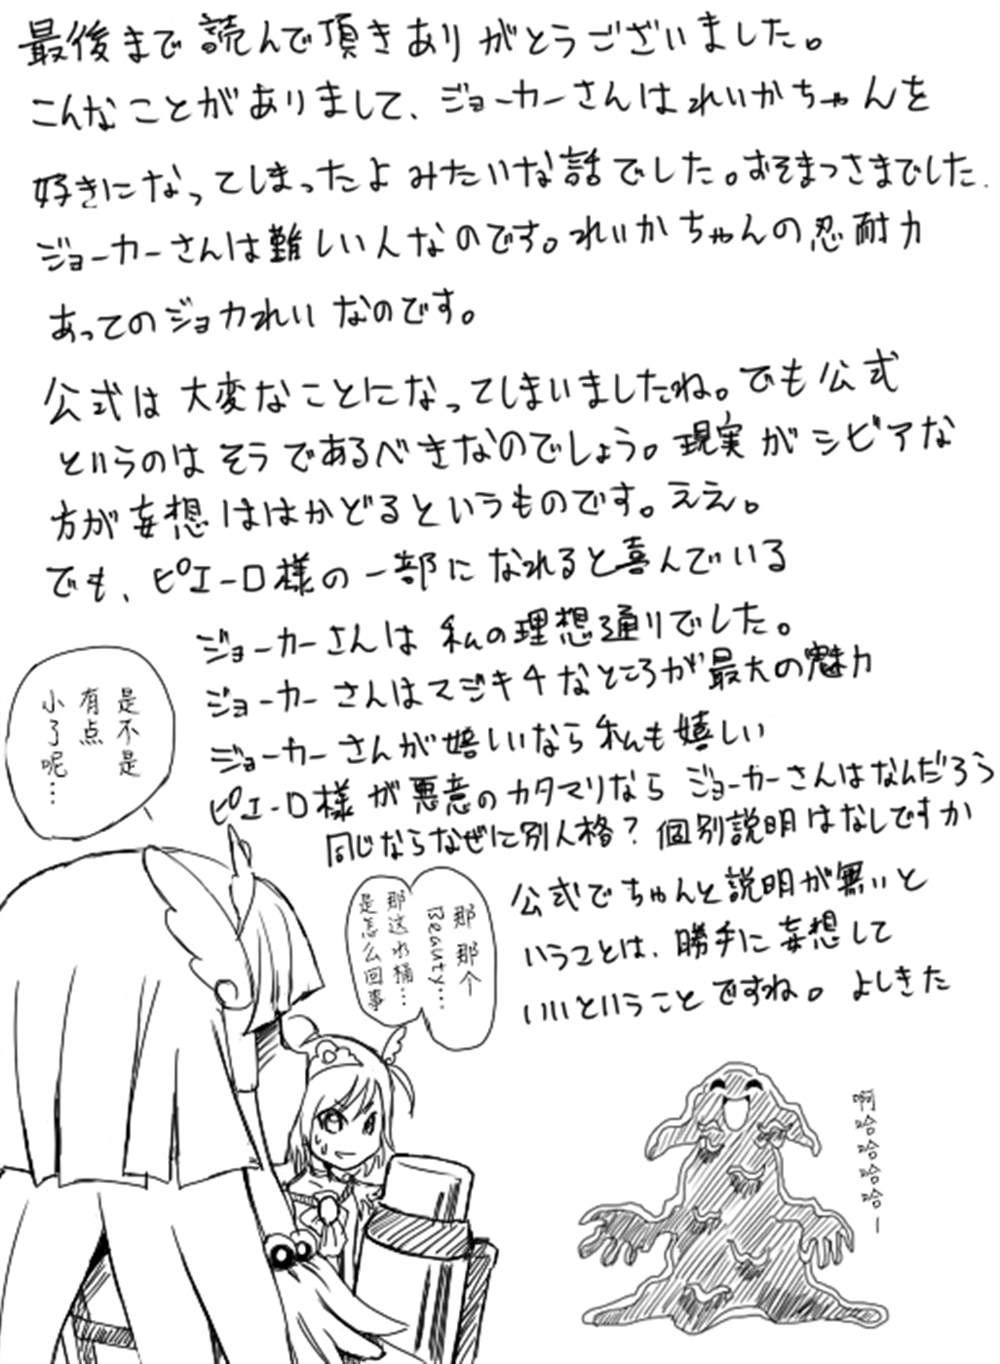 最後まで読んで頂きありがとうございました。
こんなことがありまして、ジョーカーさんはれいかちゃんを
好きになってしまったよみたいな話でした。おそまつさまでした.
ジョーカーさんは難しい人なのです。れいかちゃんの忍耐力
あってのジョカれいなのです。
公式は大変なことになってしまいましたね。でも公式
というのはそうであるべきなのでしょう。現実がシビアな
方が妄想ははかどるというものです。ええ。
でも、ピエーロ様の一部になれると喜んでいる
ジョーカーさんは私の理想通りでした。
ジョーカーさんはマジキチなところが最大の魅力
ジョーカーさんが嬉しいなら私も嬉しい
ピエーロ様が悪意のカタマリなら ジョーカーさんはなんだろう
同じならなぜに別人格？個別説明はなしですか
公式でちゃんと説明が無いと
いうことは、勝手に妄想して
いいということですね。よしきた
是不是
有点
小了呢…
那那个
Beauty…
那这水桶…
是怎么回事
啊哈哈哈哈ー